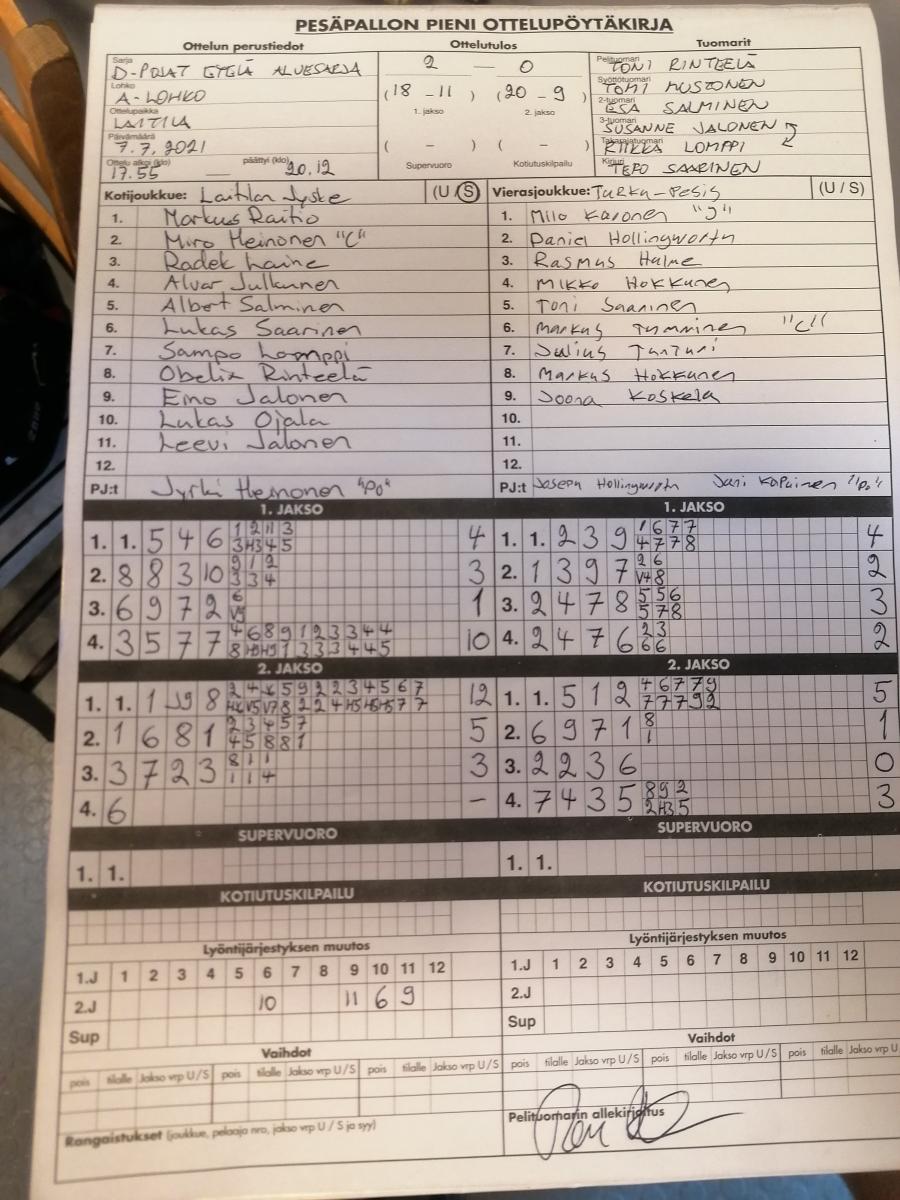 PESÄPALLON PIENI OTTELUPÖYTÄKIRJA
Ottelun perustiedot Ottelutulos Tuomarit
Sarja D-POJAT ETELÄ ALUESARJA
Lohko A-LOHKO
Ottelupaikka LAITILA
Päivämäärä 7.7.2021
Ottelu alkoi (klo) 17.55 — päättyi (klo) 20.12
2 — 0
(18 - 11) (20 - 9)
1. jakso 2. jakso
( - ) ( - )
Supervuoro Kotiutuskilpailu
Pelituomari TONI RINTEELÄ
Syöttötuomari TOMI MUSTONEN
2-tuomari ESA SALMINEN
3-tuomari SUSANNE JALONEN
Takarajatuomari RIIKKA LOMPPI
Kirjuri TEPO SAARINEN
Kotijoukkue: Laitilan Jyske (U/S)
1. Markus Raitio
2. Miro Heinonen "C"
3. Radek Laine
4. Alvar Julkunen
5. Albert Salminen
6. Lukas Saarinen
7. Sampo Lomppi
8. Obelix Rinteelä
9. Eino Jalonen
10. Lukas Ojala
11. Leevi Jalonen
12.
PJ:t Jyrki Heinonen "PO"
Vierasjoukkue: TURKU-PESIS (U/S)
1. Milo Karonen "J"
2. Daniel Hollingworth
3. Rasmus Halme
4. Mikko Hokkanen
5. Toni Saarinen
6. Markus Tumminen "C"
7. Julius Tanturi
8. Markus Hokkanen
9. Joona Koskela
10.
11.
12.
PJ:t Joseph Hollingworth Jani Kapainen "PO"
1. JAKSO
1. 1. 5 4 6 4
2. 8 8 3 10 3
3. 6 9 7 2 1
4. 3 5 7 7 10
1. JAKSO
1. 1. 2 3 9 4
2. 1 3 9 7 2
3. 2 4 7 8 3
4. 2 4 7 6 2
2. JAKSO
1. 1. 1 9 8 12
2. 1 6 8 1 5
3. 3 7 2 3 3
4. 6 -
2. JAKSO
1. 1. 5 1 2 5
2. 6 9 7 1 1
3. 2 2 3 6 0
4. 7 4 3 5 3
SUPERVUORO
1. 1.
SUPERVUORO
1. 1.
KOTIUTUSKILPAILU
KOTIUTUSKILPAILU
Lyöntijärjestyksen muutos
1.J 1 2 3 4 5 6 7 8 9 10 11 12
2.J 10 11 6 9
Sup
Lyöntijärjestyksen muutos
1.J 1 2 3 4 5 6 7 8 9 10 11 12
2.J
Sup
Vaihdot
pois tilalle Jakso vrp U/S pois tilalle Jakso vrp U/S pois tilalle Jakso vrp U/S
Vaihdot
pois tilalle Jakso vrp U/S pois tilalle Jakso vrp U/S pois tilalle Jakso vrp U
Rangaistukset (joukkue, pelaaja nro, jakso vrp U / S ja syy)
Pelituomarin allekirjoitus